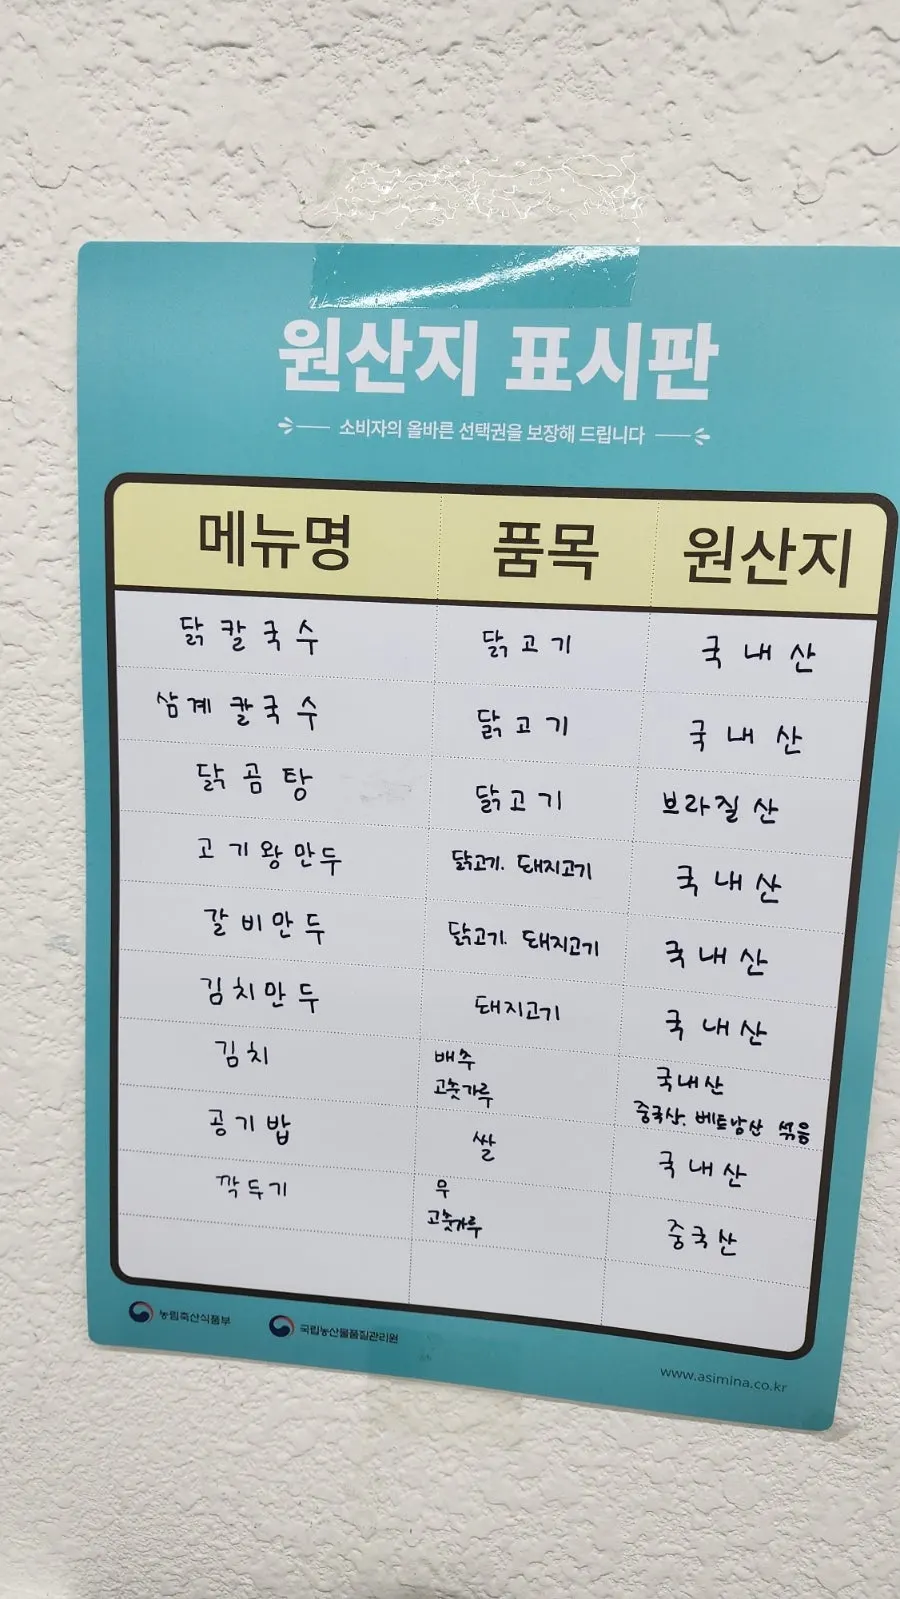 원산지 표시판
소비자의 올바른 선택권을 보장해 드립니다
메뉴명 품목 원산지
닭칼국수 닭고기 국내산
삼계칼국수 닭고기 국내산
닭곰탕 닭고기 브라질산
고기왕만두 닭고기. 돼지고기 국내산
갈비만두 닭고기. 돼지고기 국내산
김치만두 돼지고기 국내산
김치 배추 국내산
고춧가루 중국산. 베트남산 섞음
공기밥 쌀 국내산
깍두기 무
고춧가루 중국산
농림축산식품부 국립농산물품질관리원
www.asimina.co.kr